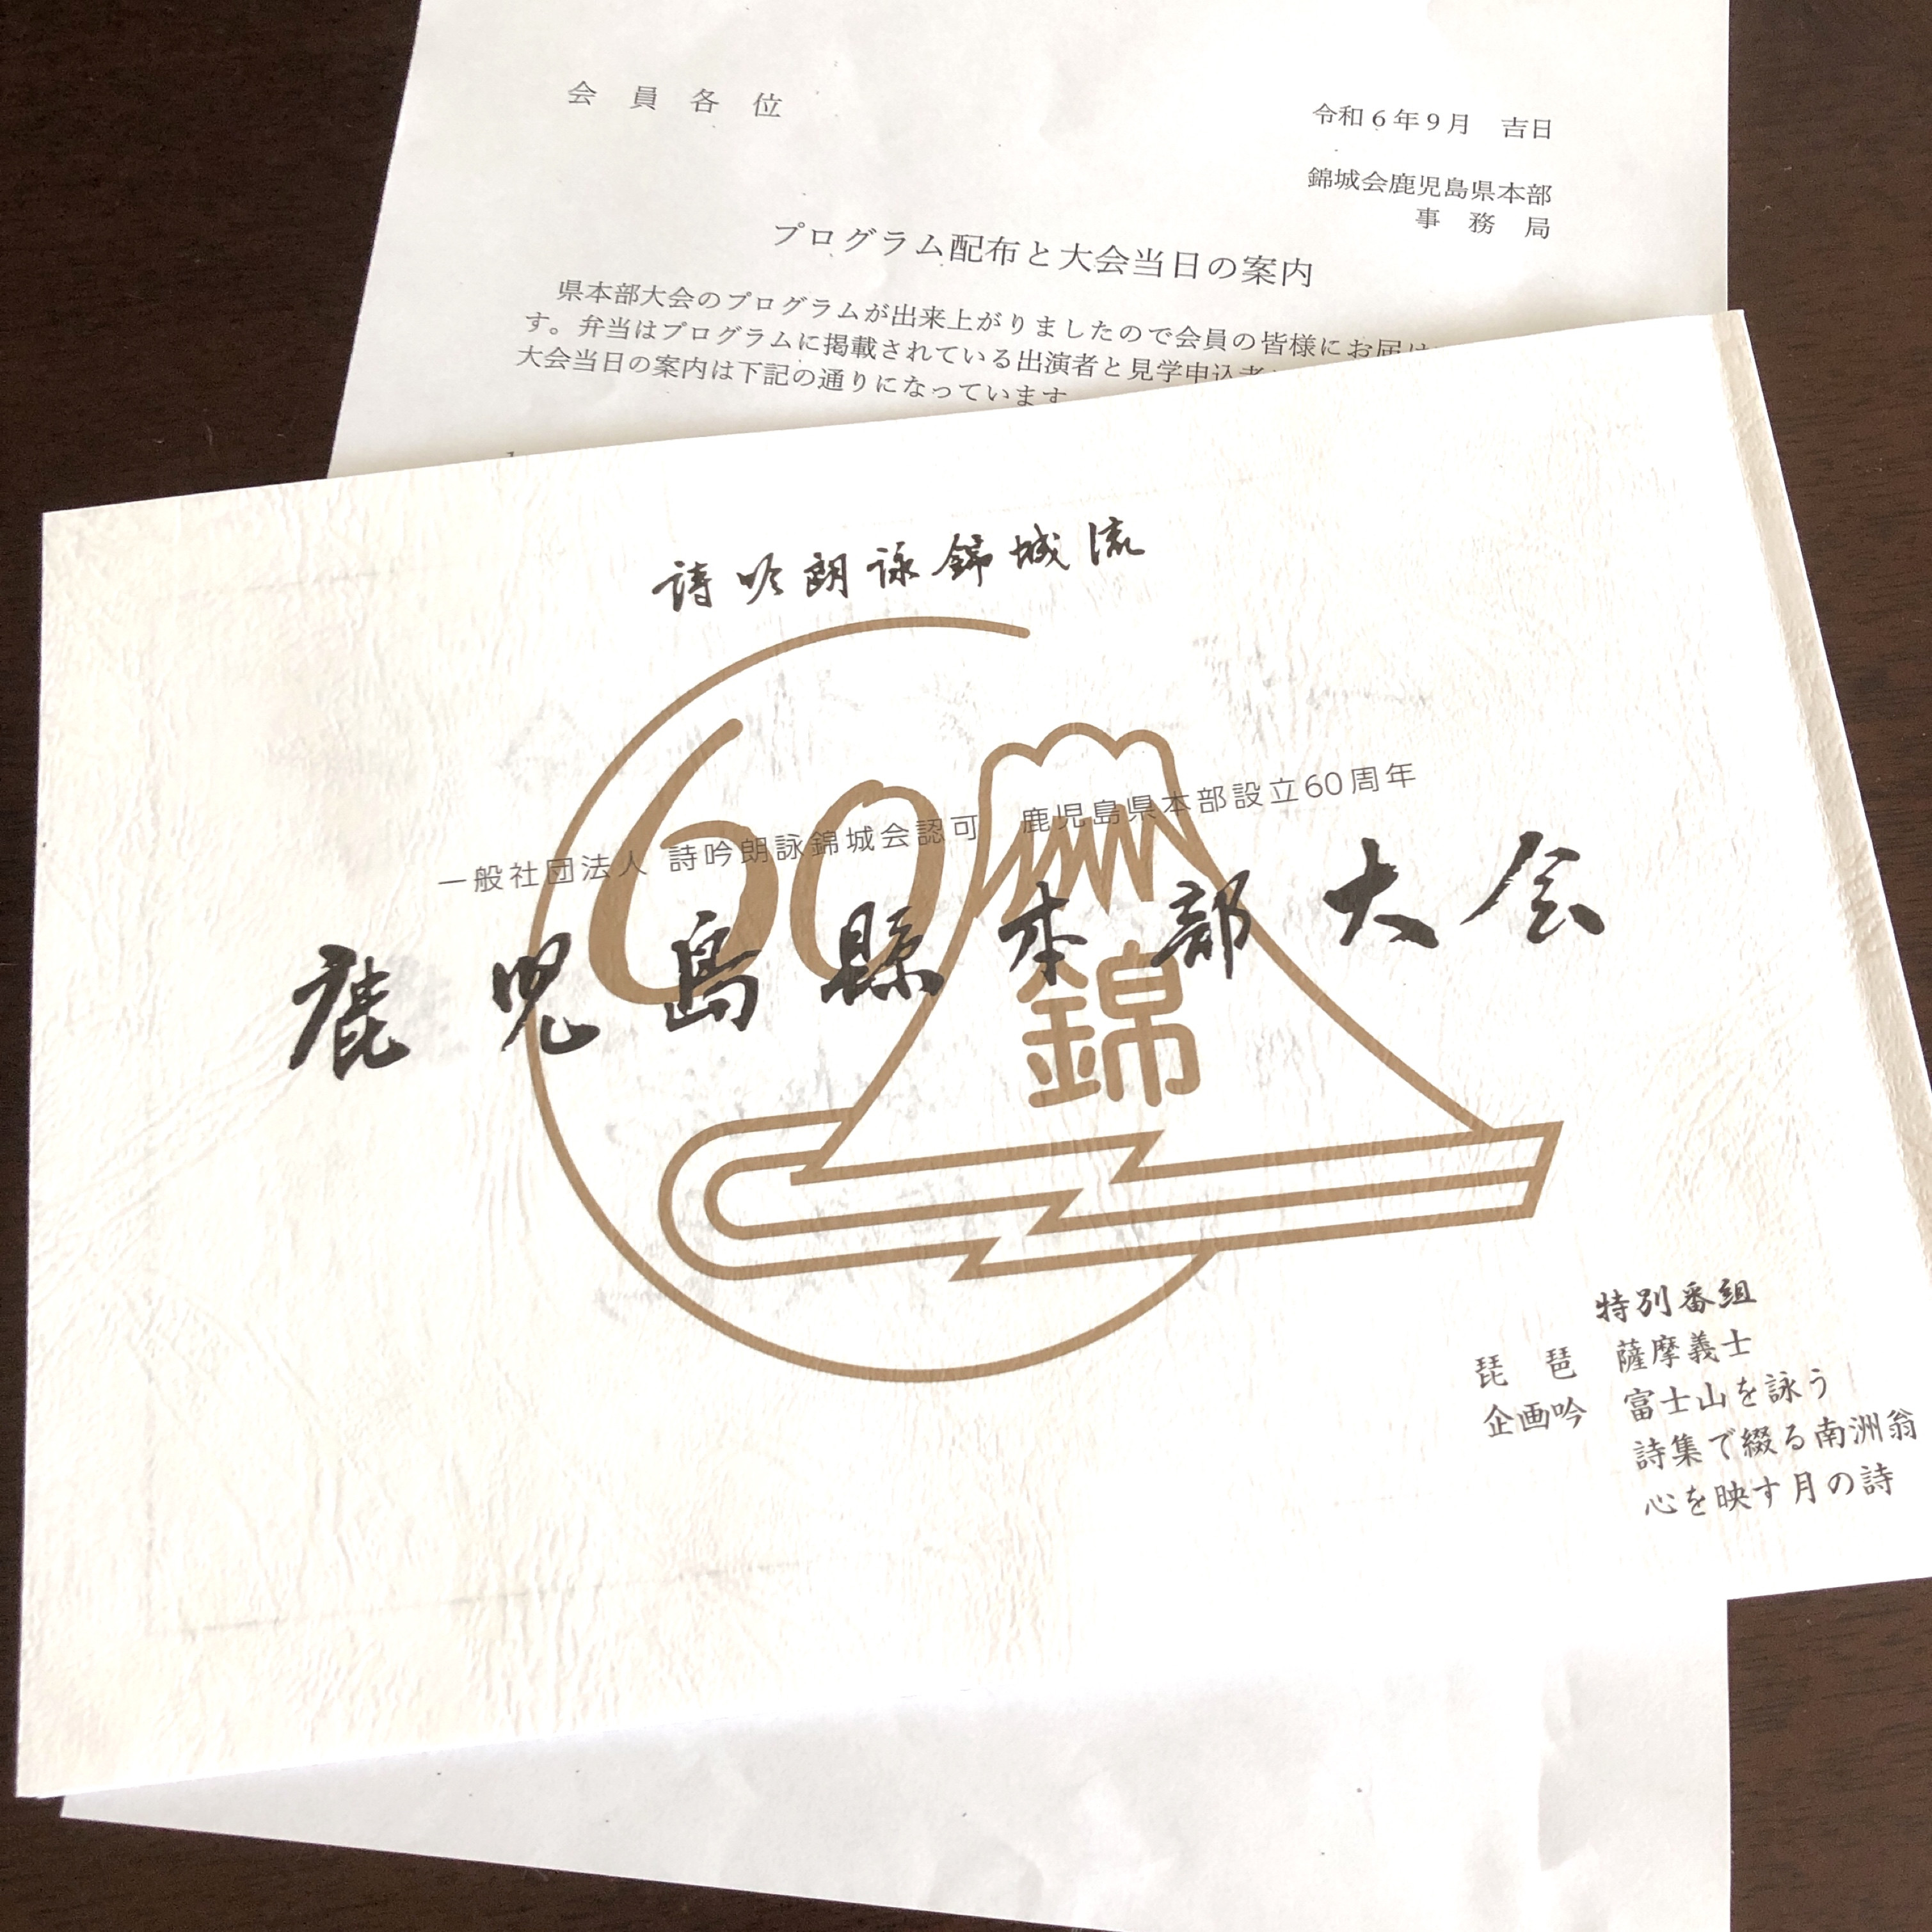 会員各位
令和6年9月　吉日
錦城会鹿児島県本部
事務局
プログラム配布と大会当日の案内
県本部大会のプログラムが出来上がりましたので会員の皆様にお届け
す。弁当はプログラムに掲載されている出演者と見学申込者
大会当日の案内は下記の通りになっています
詩吟朗詠錦城流
60
一般社団法人 詩吟朗詠錦城会認可　鹿児島県本部設立60周年
鹿児島縣本部大会
錦
特別番組
琵琶　薩摩義士
企画吟　富士山を詠う
詩集で綴る南洲翁
心を映す月の詩